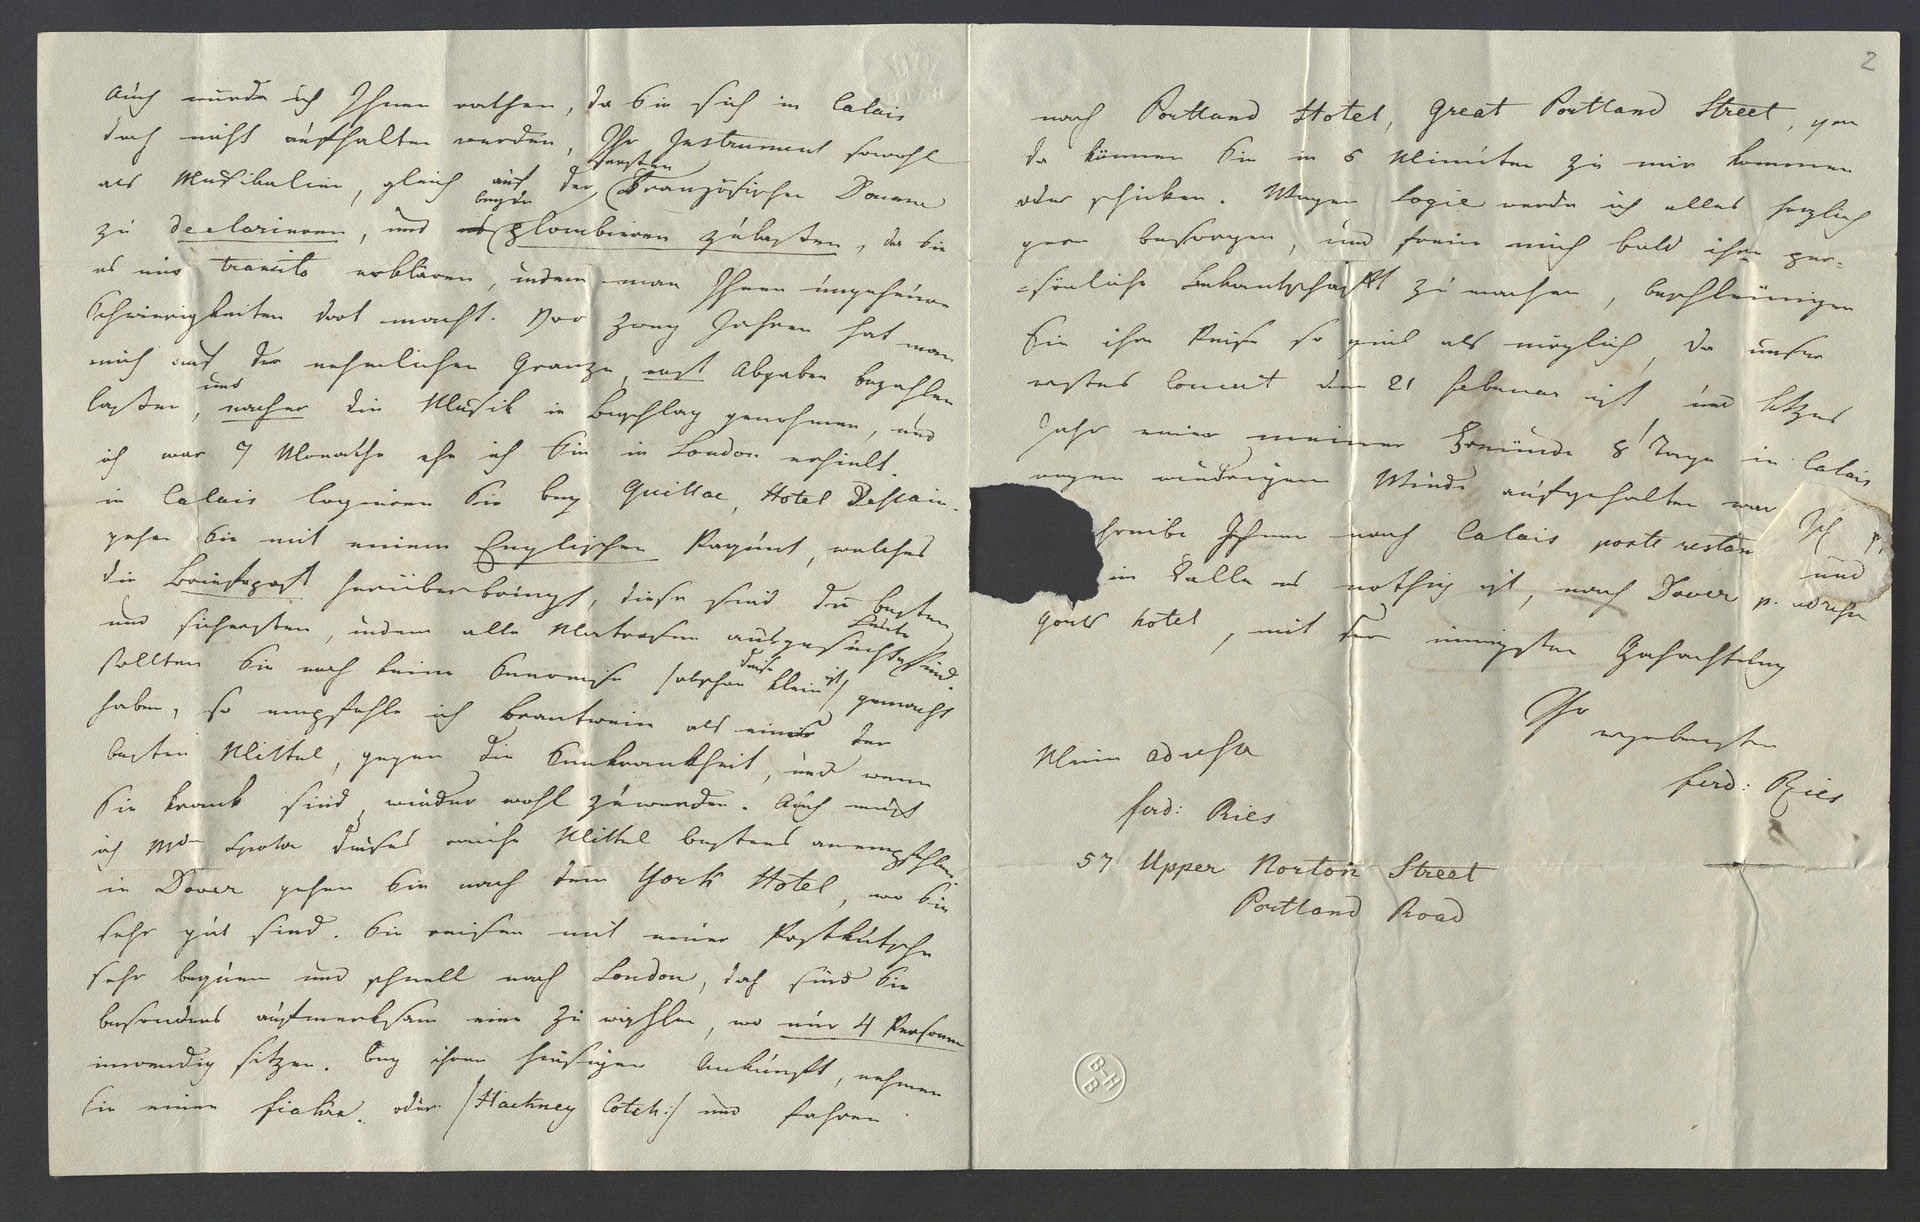 2
Auch würde ich Ihnen rathen, da Sie sich in Calais
doch nicht aufhalten werden, Ihr Instrument sowohl
als Musikalien, gleich auf der ersten Französischen Douane
zu declariren, und beyde plombieren zulassen, da Sie
es nur transito erklären, indem man Ihnen ungeheure
Schwierigkeiten dort macht. Vor zwey Jahren hat man
mich auf der nehmlichen Granze erst Abgaben bezahlen
lassen, und nacher die Musik in Beschlag genohmen, und
ich war 7 Monathe ehe ich Sie in London erhielt.
in Calais logieren Sie bey Quillac, Hotel Dessain.
gehen Sie mit einem Englischen Paquet, welches
die Briefepost herüberbringt, diese sind die besten
und sichersten, indem alle Matrosen ausgesuchte Leute sind.
sollten Sie noch keine Seereise /obschon diese klein ist/ gemacht
haben, so empfehle ich Brantwein als eines der
besten Mittel, gegen die Seekrankheit, und wenn
Sie krank sind, wieder wohl zuwerden. Auch muß
ich Mde Spohr dieses Mittel bestens anempfehlen.
in Dover gehen Sie nach dem York Hotel, wo Sie
sehr gut sind. Sie reisen mit einer Postkutsche
sehr bequem und schnell nach London, doch sind Sie
besonders aufmerksam eine zu wählen, wo nur 4 Personen
inwendig sitzen. Bey ihrer hiesigen Ankunft, nehmen
Sie einen fiakre. oder /Hackney Cotch:/ und fahren
nach Portland Hotel, Great Portland Street, von
da können Sie in 5 Minuten zu mir kommen
oder schicken. Wegen Logie werde ich alles herzlich
gern besorgen, und freue mich bald ihre per-
-sönliche Bekantschaft zu machen, beschleunigen
Sie ihre Reise so viel als möglich, da unser
erstes Concert den 21 Februar ist, und letztes
Jahr einer meiner Freunde 8 Tage in Calais
wegen wiedrigem Winde aufgehalten war Ich
schreibe Ihnen nach Calais poste restan und
im Falle es nothig ist, nach Dover p. adresse
York hotel, mit der innigsten Hochachtung
Ihr
ergebenster
ferd: Ries
Meine adresse
ferd: Ries
57 Upper Norton Street
Portland Road
B-H
B